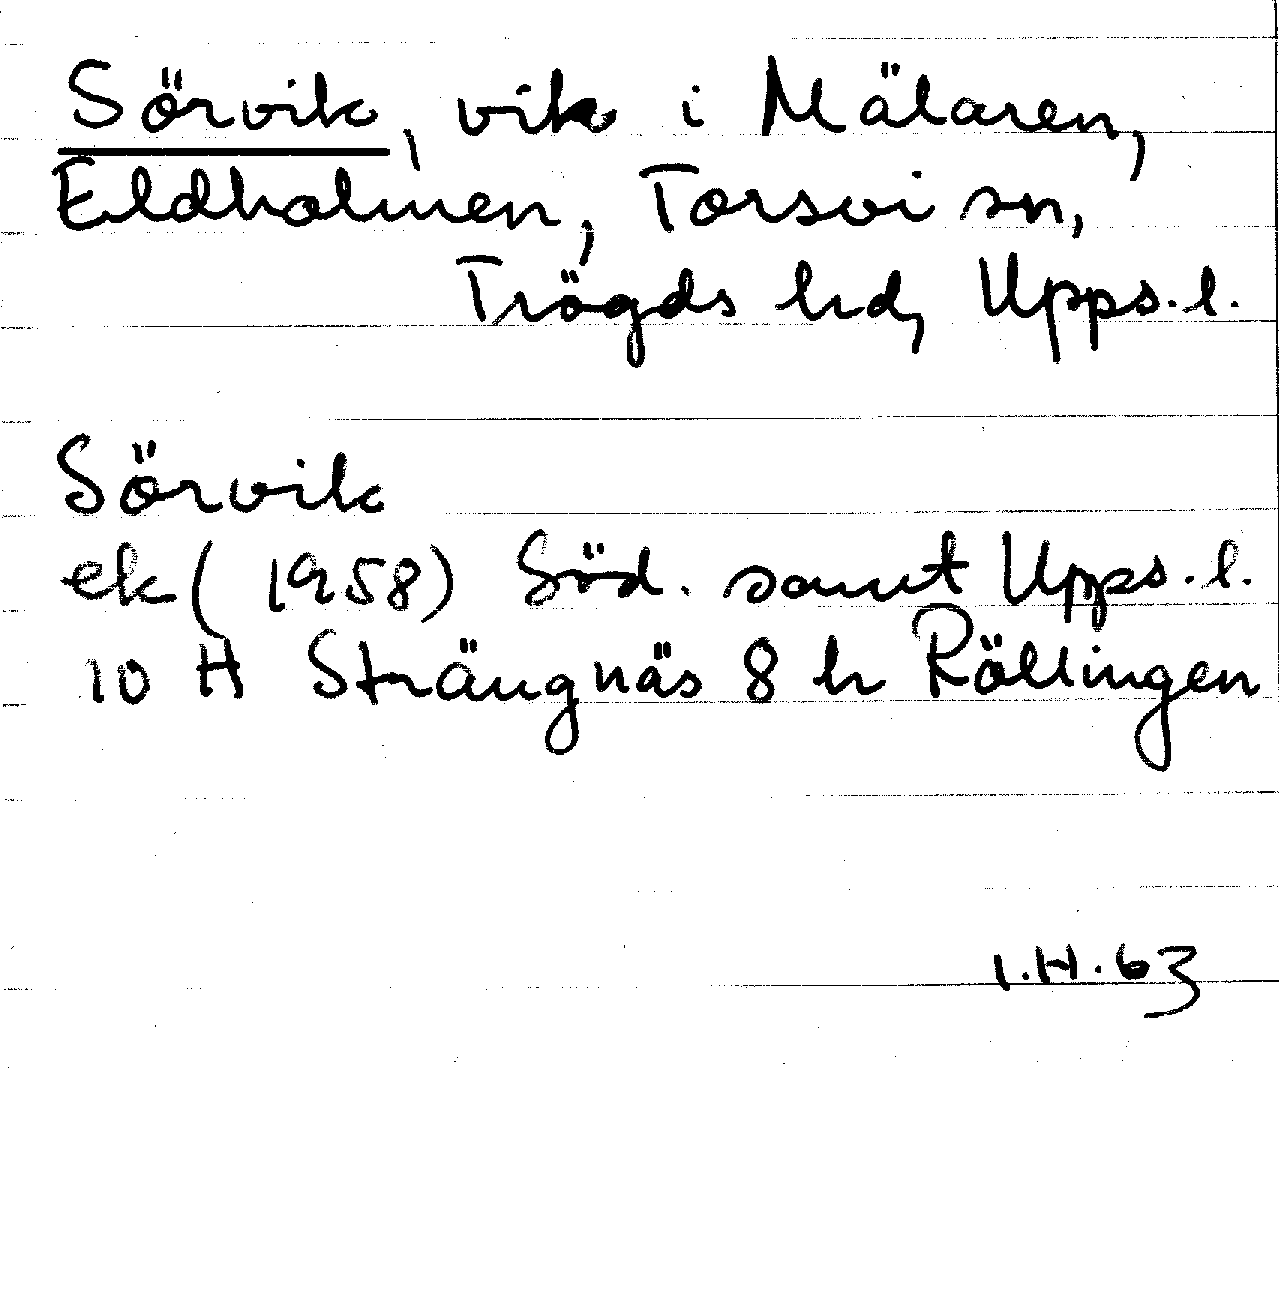 Sörvik, vik i Mälaren,
Eldholmen, Torsvi sn,
Trögds hd, Upps. l.
Sörvik
ek (1958) Söd. samt Upps. l.
10 H Strängnäs 8 h Röllingen
I.H. 63